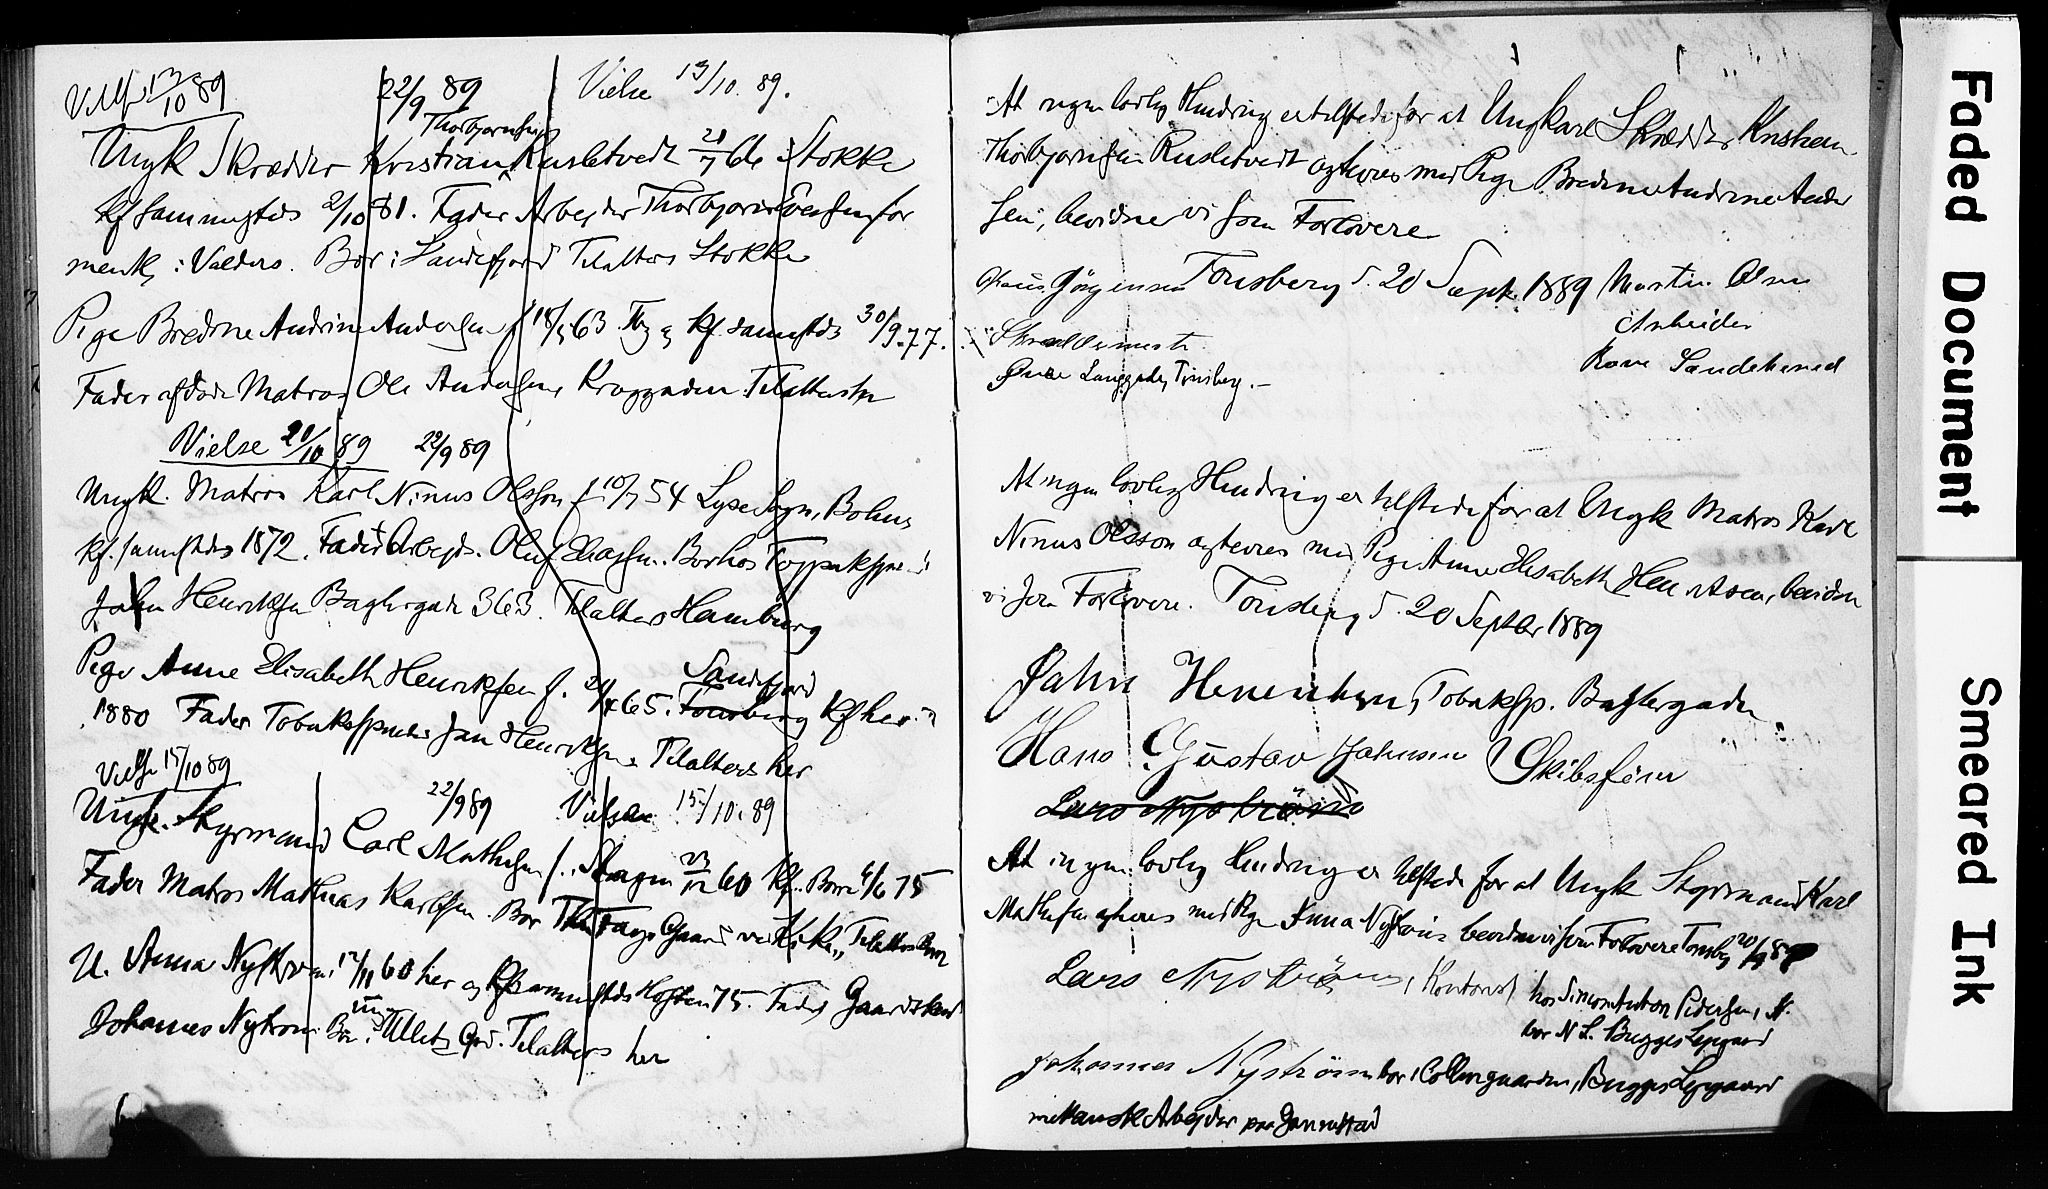 Vielse 13/10 89
22/9 89
Vielse 13/10. 89.
Thorbjørnsen
Ungk Skrædder Kristian Rusletvedt 21/7 66 Stokke
Kf sammesteds 2/10 81. Fader Arbejder Thorbjørn for
mentl, i Valders. Bor i Sandefjord Tilalters Stokke
Pige Bredine Andrine Andersen f 18/5 63 Tbg og Kf sammestds 30/9. 77.
Fader afdøde Matros Ole Andersen, Tilalters her
Vielse 20/10 89 22/9 89
Ungk. Matros Karl Ninus Olsson f. 10/7 54 Lyse Sogn, Bohus
Kf. sammesteds 1872. Fader Arbejd. Oluf Eliassen. Bor hos Tobakspinder
John Henriksen Baglergaden 363. Tilalters Hamburg
Sandefjord
Pige Anne Elisabeth Henriksen f. 24/4 65. Tønsberg Kf her
1880 Fader Tobakspinder Jan Henriksen, Tilalters her
Vielse 15/10 89
22/9 89 Vielse 15/10. 89
Ungk. Styrmand Carl Mathisen f. Slagen 23/12 60 Kf. Borre 4/6 75
Fader Matros Mathias Karlsen. Bor Gaard ved Tilalters Borre
U. Anna Nystrøm 12/11 60 her og Kf sammestds Høsten 75. Fader Gaardskarl
Johannes Nystrøm Bor i Tilalters her
At ingen lovlig Hindring er tilstede for at Ungkarl Skrædder Kristian
Thorbjørnsen Rusletvedt ægtevies med Pige Bredine Andrine Ander
sen, bevidne vi som Forlovere
Tønsberg d. 20 Sept. 1889
Jörgensen
Martin Olsen
Skreddermester
Arbeider
Øvre Langgade, Tønsberg.
Rove Sandeherred
At ingen lovlig Hindring er tilstede for at Ungk Matros Karl
Ninus Olsson ægtevies med Pige Anne Elisabeth Henriksen, bevidne
vi som Forlovere. Tønsberg d. 20 Septbr 1889
Jahn Henriksen, Tobaksp. Baglergaden
Hans Gustav Johnsen Skibsfører
Lars Nyström
At ingen lovlig Hindring er tilstede for at Ungk Styrmand Karl
Mathisen ægtevies med Pige Anna Nyströms bevidne vi som Forlovere Tønsberg 20/9 89
Lars Nyström, Kontorist hos Simon Anton Pedersen,
bor N L. Bugges Løpgaard
Johannes Nyström bor i Bugges Løpgaard
mekanisk Arbejder paa
Faded Document
Smeared Ink